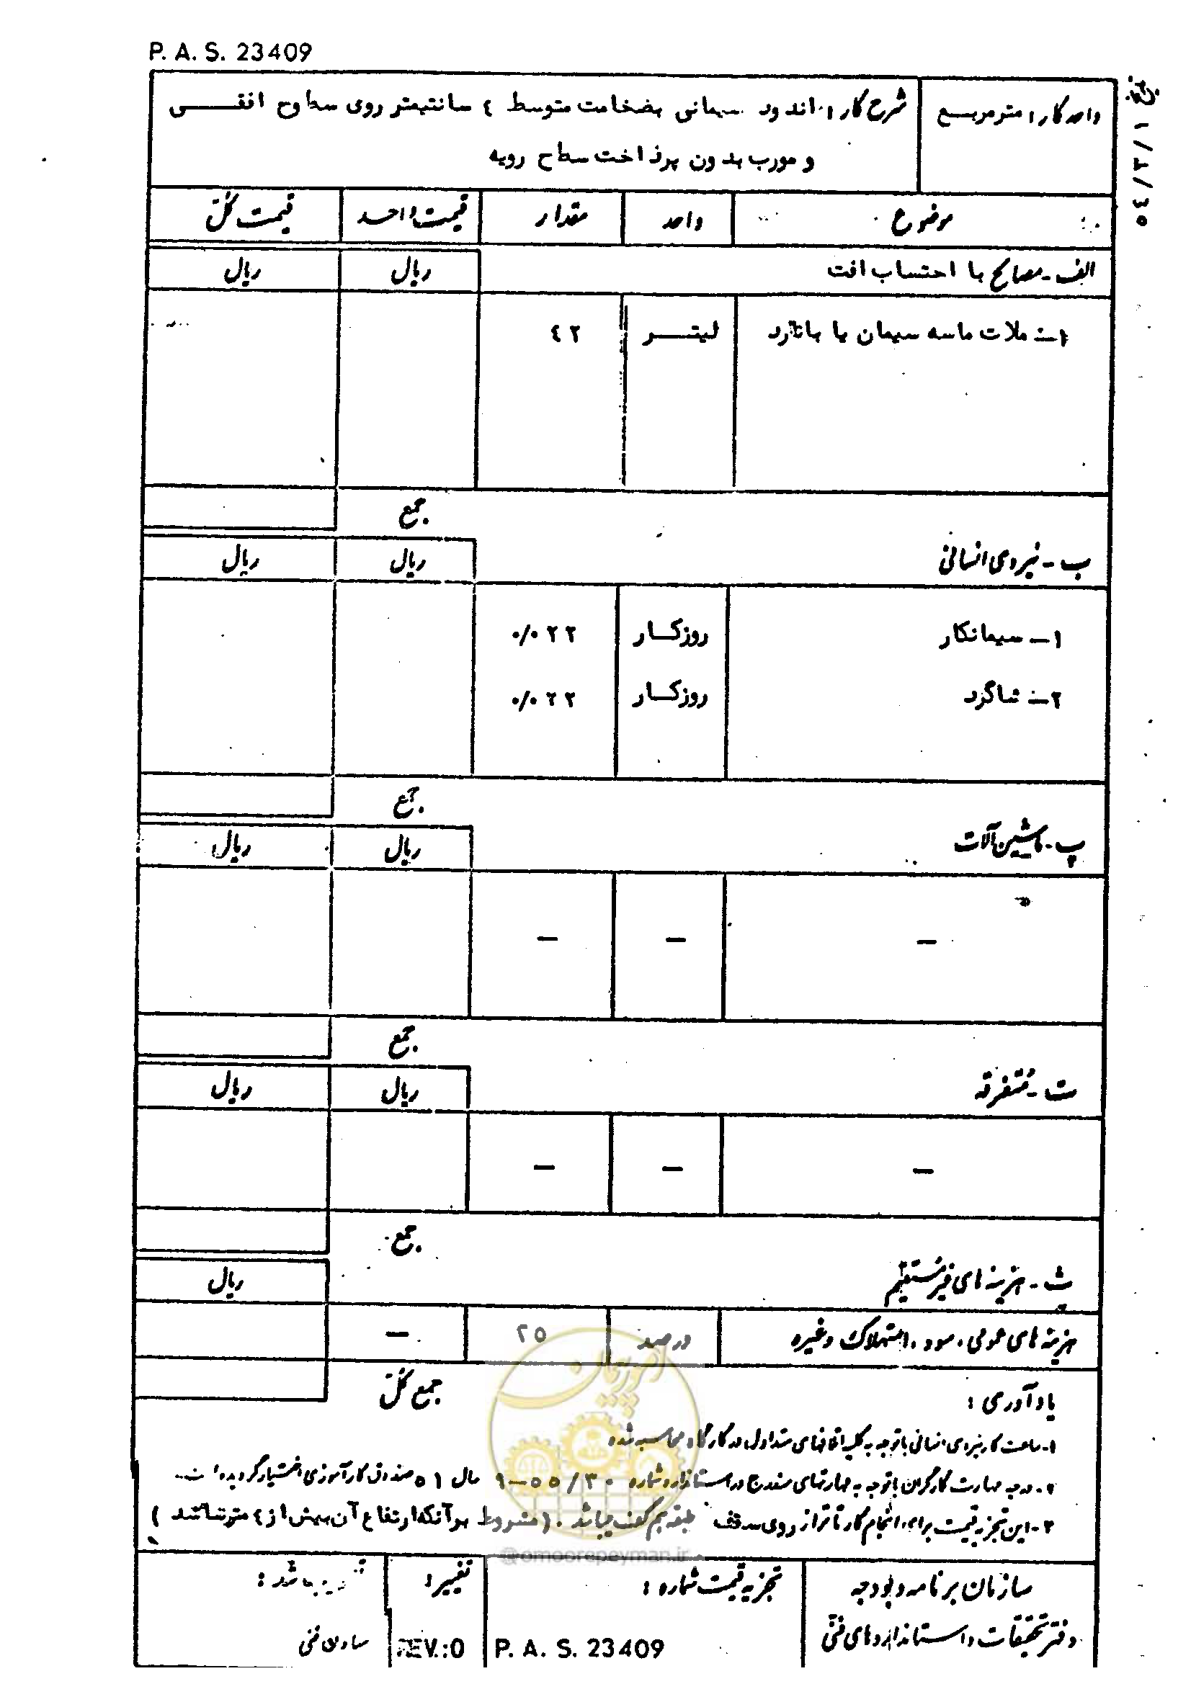 P. A. S. 23409
واحد کار : مترمربع
شرح کار : اندود سیمانی بضخامت متوسط ٤ سانتیمتر روی سطوح افقی
و مورب بدون پرداخت سطح رویه
موضوع واحد مقدار قیمت واحد قیمت کل
الف - مصالح با احتساب افت ریال ریال
۱- ملات ماسه سیمان یا باتارد لیتر ٤٢
جمع
ب - نیروی انسانی ریال ریال
۱- سیمانکار روزکار ۰/۰۲۲
۲- شاگرد روزکار ۰/۰۲۲
جمع
پ - ماشین آلات ریال ریال
— — —
جمع
ت - متفرقه ریال ریال
— — —
جمع
ث - هزینه های غیرمستقیم ریال
هزینه های عمومی ، سود ، استهلاک وغیره درصد ۲۵ —
جمع کل
یادآوری :
۱- ساعت کار نیروی انسانی باتوجه به کلیه اتلافهای متداول در کارگاه محاسبه شده
۲- درجه مهارت کارگران باتوجه به مهارتهای مندرج در استاندارد شماره ۳۰/۵۵-۹ سال ۵۱ صندوق کارآموزی اختیار گردیده است
۳- این تجزیه قیمت برای انجام کار تا تراز روی سقف طبقه همکف میباشد . (مشروط برآنکه ارتفاع آن بیش از ٤ متر نباشد )
امور پیمان
@omoorepeyman.ir
سازمان برنامه و بودجه
دفتر تحقیقات و استانداردهای فنی
تجزیه قیمت شماره :
P. A. S. 23409
تغییر :
REV.:0
معاون فنی